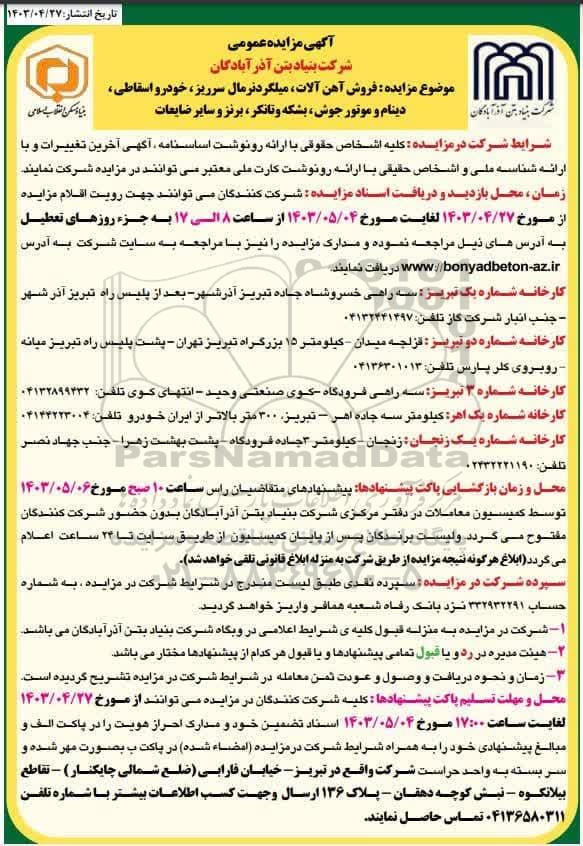 تاریخ انتشار: ۱۴۰۳/۰۴/۲۷
آگهی مزایده عمومی
شرکت بنیاد بتن آذرآبادگان
موضوع مزایده : فروش آهن آلات ، میلگرد نرمال سرریز ، خودرو اسقاطی ،
دینام و موتور جوش ، بشکه و تانکر ، برنز و سایر ضایعات
بنیاد مسکن انقلاب اسلامی
شرکت بنیاد بتن آذرآبادگان
شرایط شرکت در مزایده : کلیه اشخاص حقوقی با ارائه رونوشت اساسنامه ، آگهی آخرین تغییرات و با
ارائه شناسه ملی و اشخاص حقیقی با ارائه رونوشت کارت ملی معتبر می توانند در مزایده شرکت نمایند.
زمان ، محل بازدید و دریافت اسناد مزایده : شرکت کنندگان می توانند جهت رویت اقلام مزایده
از مورخ ۱۴۰۳/۰۴/۲۷ لغایت مورخ ۱۴۰۳/۰۵/۰۴ از ساعت ۸ الی ۱۷ به جزء روزهای تعطیل
به آدرس های ذیل مراجعه نموده و مدارک مزایده را نیز با مراجعه به سایت شرکت به آدرس
www.//bonyadbeton-az.ir دریافت نمایند.
کارخانه شماره یک تبریز : سه راهی خسروشاه جاده تبریز آذرشهر- بعد از پلیس راه تبریز آذر شهر
- جنب انبار شرکت گاز تلفن: ۰۴۱۳۲۴۴۱۴۹۷
کارخانه شماره دو تبریز : قزلجه میدان - کیلومتر ۱۵ بزرگراه تبریز تهران - پشت پلیس راه تبریز میانه
- روبروی کلر پارس تلفن: ۰۴۱۳۶۳۰۱۰۱۳
کارخانه شماره ۳ تبریز : سه راهی فرودگاه -کوی صنعتی وحید - انتهای کوی تلفن: ۰۴۱۳۲۸۹۹۴۳۲
کارخانه شماره یک اهر : کیلومتر سه جاده اهر – تبریز، ۳۰۰ متر بالاتر از ایران خودرو تلفن: ۰۴۱۴۴۲۲۳۰۰۴
کارخانه شماره یک زنجان : زنجان - کیلومتر ۳ جاده فرودگاه - پشت بهشت زهرا - جنب جهاد نصر
تلفن: ۰۲۴۳۲۲۲۱۱۹۰
محل و زمان بازگشایی پاکت پیشنهادها: پیشنهادهای متقاضیان راس ساعت ۱۰ صبح مورخ ۱۴۰۳/۰۵/۰۶
توسط کمیسیون معاملات در دفتر مرکزی شرکت بنیاد بتن آذرآبادگان بدون حضور شرکت کنندگان
مفتوح می گردد ولیست برندگان پس از پایان کمیسیون از طریق سایت تا ۲۴ ساعت اعلام
می گردد(ابلاغ هرگونه نتیجه مزایده از طریق شرکت به منزله ابلاغ قانونی تلقی خواهد شد).
سپرده شرکت در مزایده : سپرده نقدی طبق لیست مندرج در شرایط شرکت در مزایده ، به شماره
حساب ۳۳۲۹۳۲۲۹۱ نزد بانک رفاه شعبه همافر واریز خواهد گردید.
۱- شرکت در مزایده به منزله قبول کلیه ی شرایط اعلامی در وبگاه شرکت بنیاد بتن آذرآبادگان می باشد.
۲- هیئت مدیره در رد و یا قبول تمامی پیشنهادها و یا قبول هر کدام از پیشنهادها مختار می باشد.
۳- زمان و نحوه دریافت و وصول و عودت ثمن معامله در شرایط شرکت در مزایده تشریح گردیده است.
محل و مهلت تسلیم پاکت پیشنهادها : کلیه شرکت کنندگان در مزایده می توانند از مورخ ۱۴۰۳/۰۴/۲۷
لغایت ساعت ۱۷:۰۰ مورخ ۱۴۰۳/۰۵/۰۴ اسناد تضمین خود و مدارک احراز هویت را در پاکت الف و
مبالغ پیشنهادی خود را به همراه شرایط شرکت درمزایده (امضاء شده) در پاکت ب بصورت مهر شده و
سر بسته به واحد حراست شرکت واقع در تبریز – خیابان فارابی (ضلع شمالی چایکنار) – تقاطع
بیلانکوه – نبش کوچه دهقان – پلاک ۱۳۶ ارسال وجهت کسب اطلاعات بیشتر با شماره تلفن
۰۴۱۳۶۵۸۰۳۱۱ تماس حاصل نمایند.
ParsNamadData